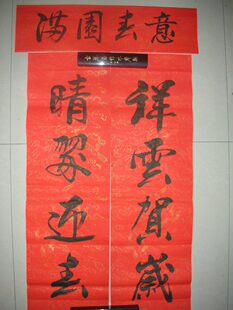 意春園满
祥雲賀歲
晴翠迎春